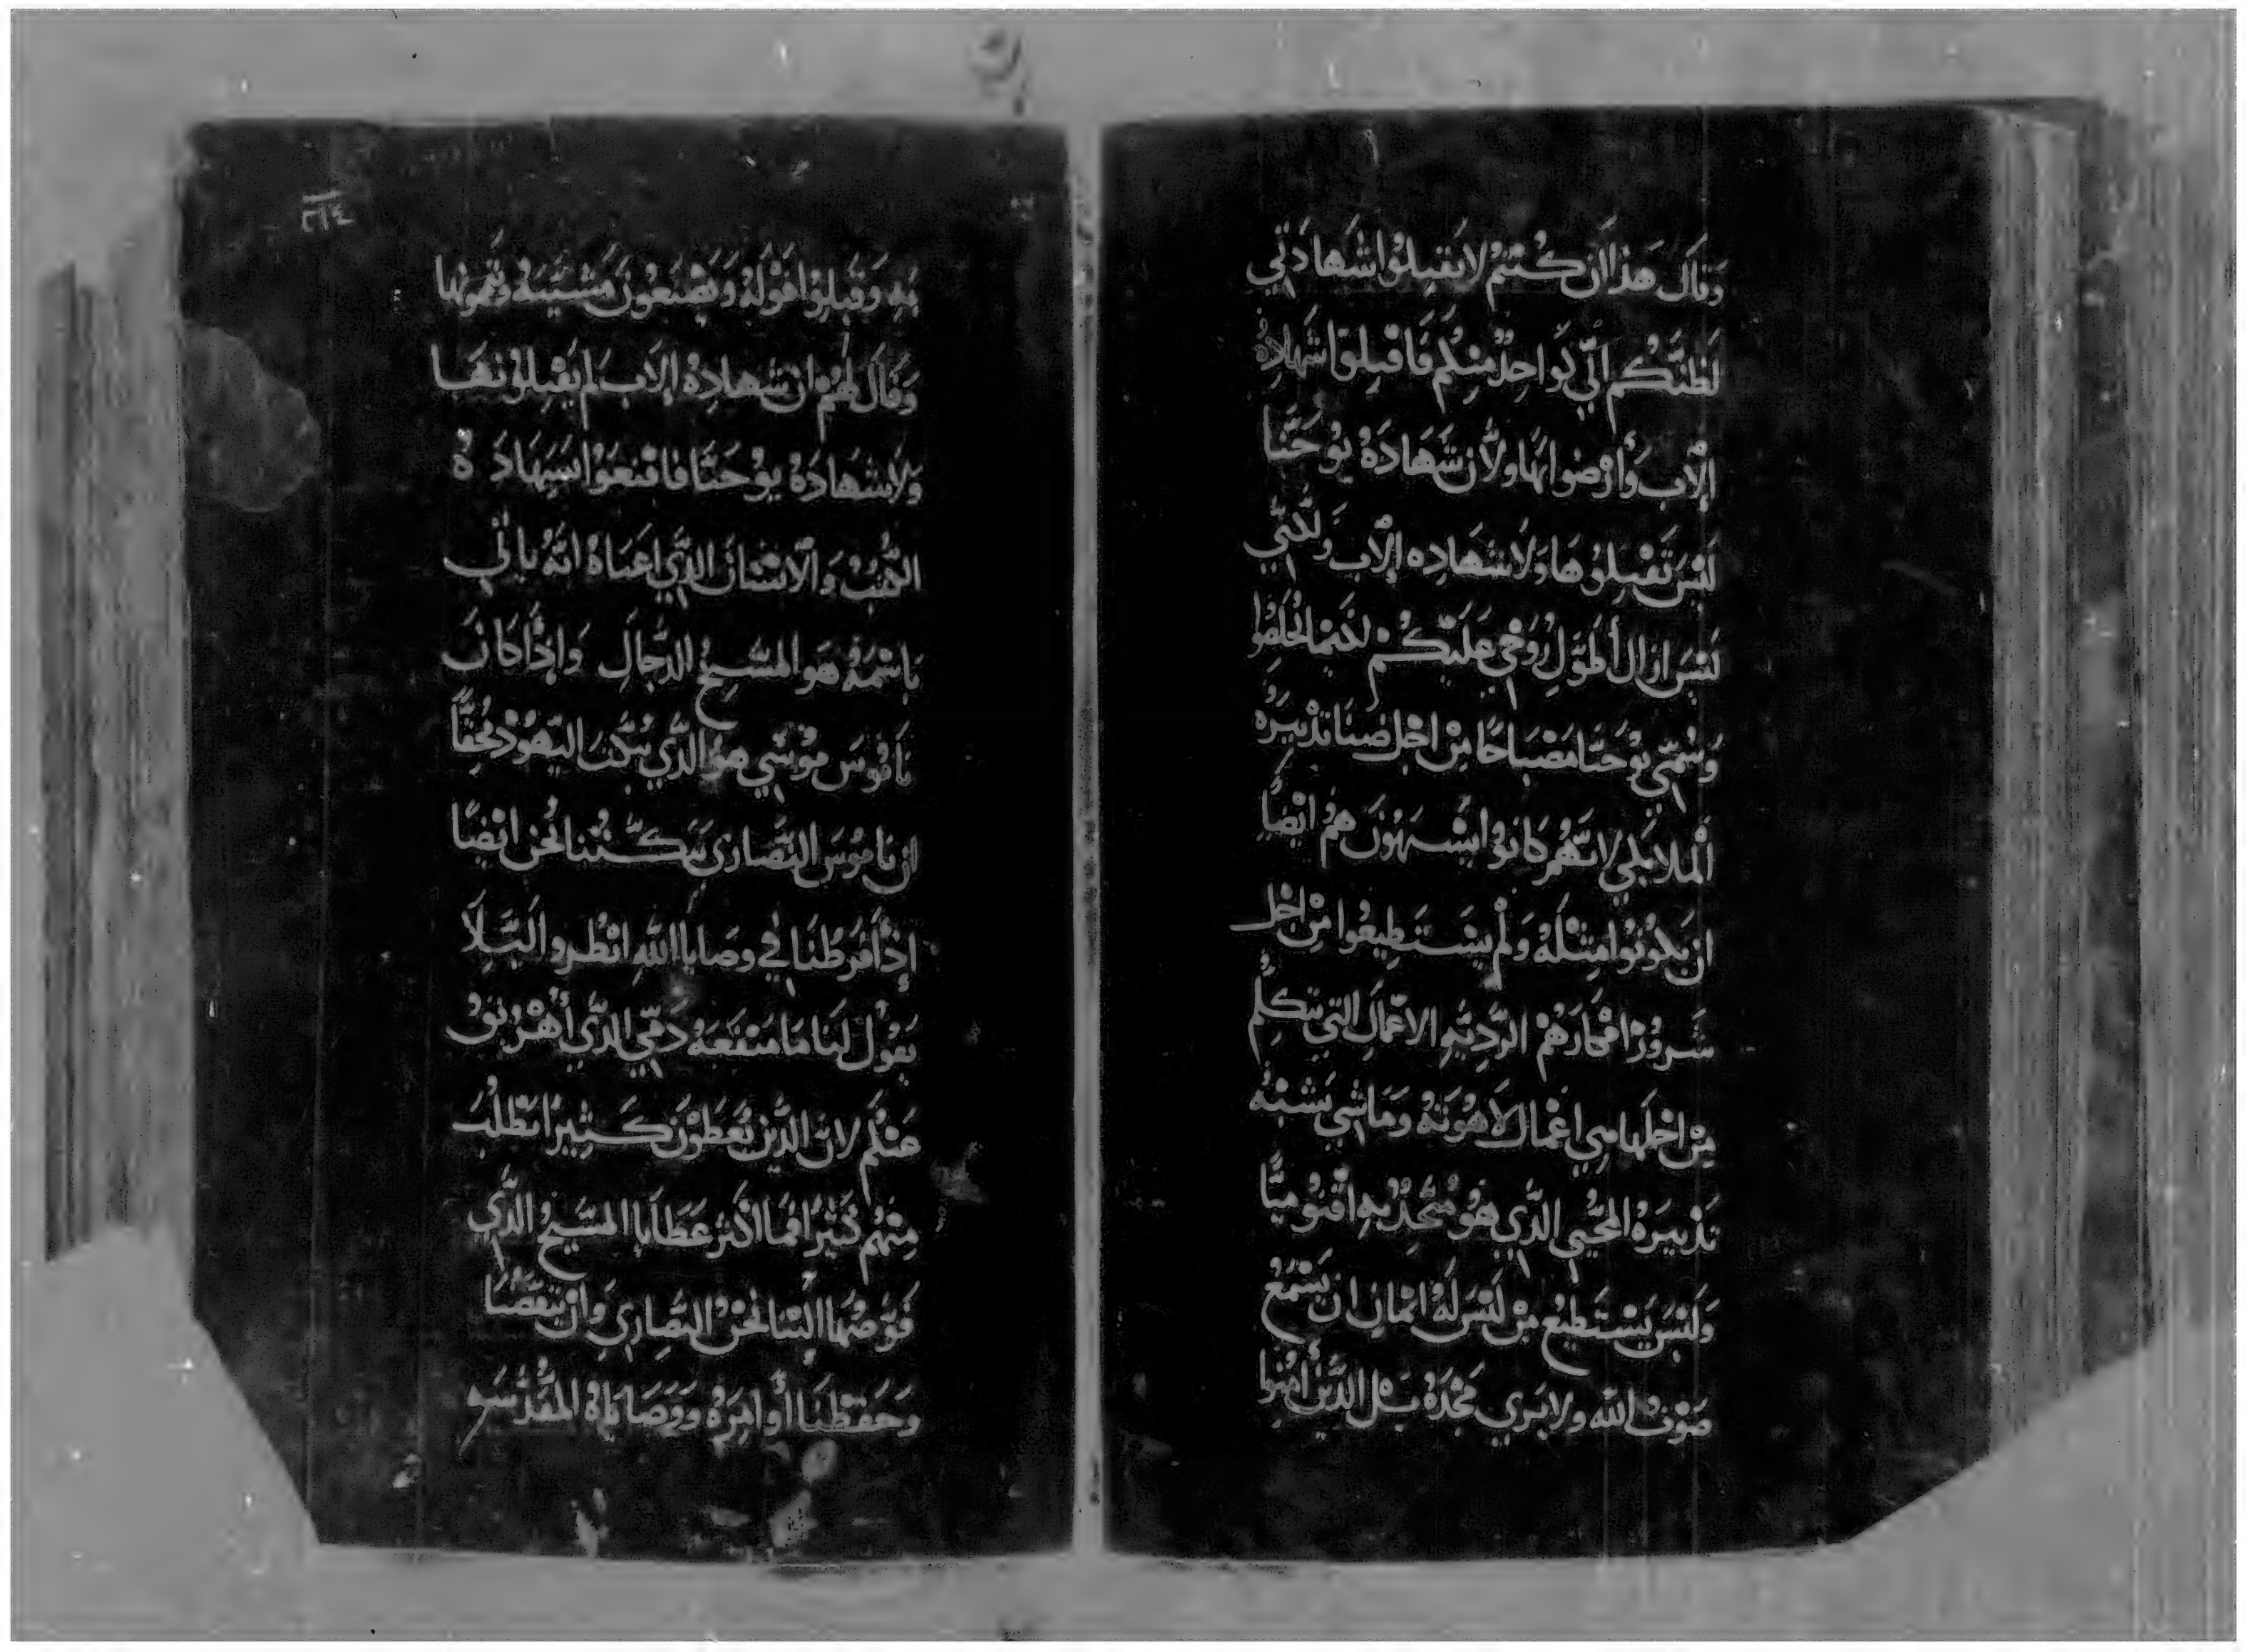 وَقَالَ هَذا اَن كُنتمُ لا تَقبِلوُا شَهادَتي
لَظنكُم اَنّي كَواحِدٌ مِنكُم فَاقبلِوُا شَهادة
الآب وَأرضوا بهَا ولأن شَهَادَةُ يوُحَنّا
لَيْسَ تَقْبِلوُهَا وَلاَ شَهادِه الآب وَلَكنّي
لَيْسَ ازال أطَوّل رُوحي عَلَيكُمْ لكَيما تخلصُوا
وَسُمّي يوُحَنّا مَصْبَاحًا مِنْ اجْل ضيَا تدْبيرَه
اَلملايكي لانّهُم كَانوُا يشتَهوُنَ همُ ايْضًا
ان يَكوُنوُا مِثلَهُ وَلَمْ يَستَطِيعُوا مِنْ اجْل
شَروُرْ افْكارَهُمْ الرّدِيّهِ الاعْمَال التي تتكلم
مِنْ اجْلهَا هي اعْمَال لاَهُوتَهُ وَمَاشي يَشبْهُ
تَدْبيَرهُ المحُيي الذَّي هوُ مُتّحِدٌ بهِ اقنوُميًّا
وَلَيْسَ يَسْتَطيعْ مِنْ لَيْسَ لَهُ ايْمان ان يَسْمَعْ
صَوْت الله ولا يَري مَجْدَهُ بَل الذَّين أمَنوُا
بهِ وَقَبلوُا قَوْلهُ وَيَصْنَعُونَ مَشيّتهُ وَيتمّونهَا
وَقَالَ لهُمْ ان شَهادِة الآب لم يَقْبلوُنهَا
وَلا شَهَادَةُ يوُحَنّا فاقنعَوا بشَهَادَةُ
الكُتبُ وَالاَنسَان الذّي اعنَاهُ انّهُ ياتي
بَاسْمهُ هَو المسَيحُ الدجال وَإذَا كانَ
نَامُوسَ موُسَي هوَ الذّي يُبَكّت اليَهوُد مُحِقًّا
ان نَاموُسَ النَّصَاري يَبَكّتُنا نَحْن ايْضًا
إذَا فَرطْنَا في وصَايا الله انْظروا لَيَلاَ
يَقوُل لَنَا مَا مَنْفَعَهُ دَمّي الذّي أهْريق
عَنكُم لان الذّين يُعَطَوْنَ كَثيرًا يُطْلبُ
مِنهُمْ كَثيْرًا فمَا اكثر عَطَايا المسَيحُ الذّي
فَوّضهَا الينَا نَحْنُ النّصَاري وَان تَيَقّضنَا
وحَفَظنَا أوَامِرَهُ وَوَصَايَاهُ المقَدّسَهِ
٢١٤